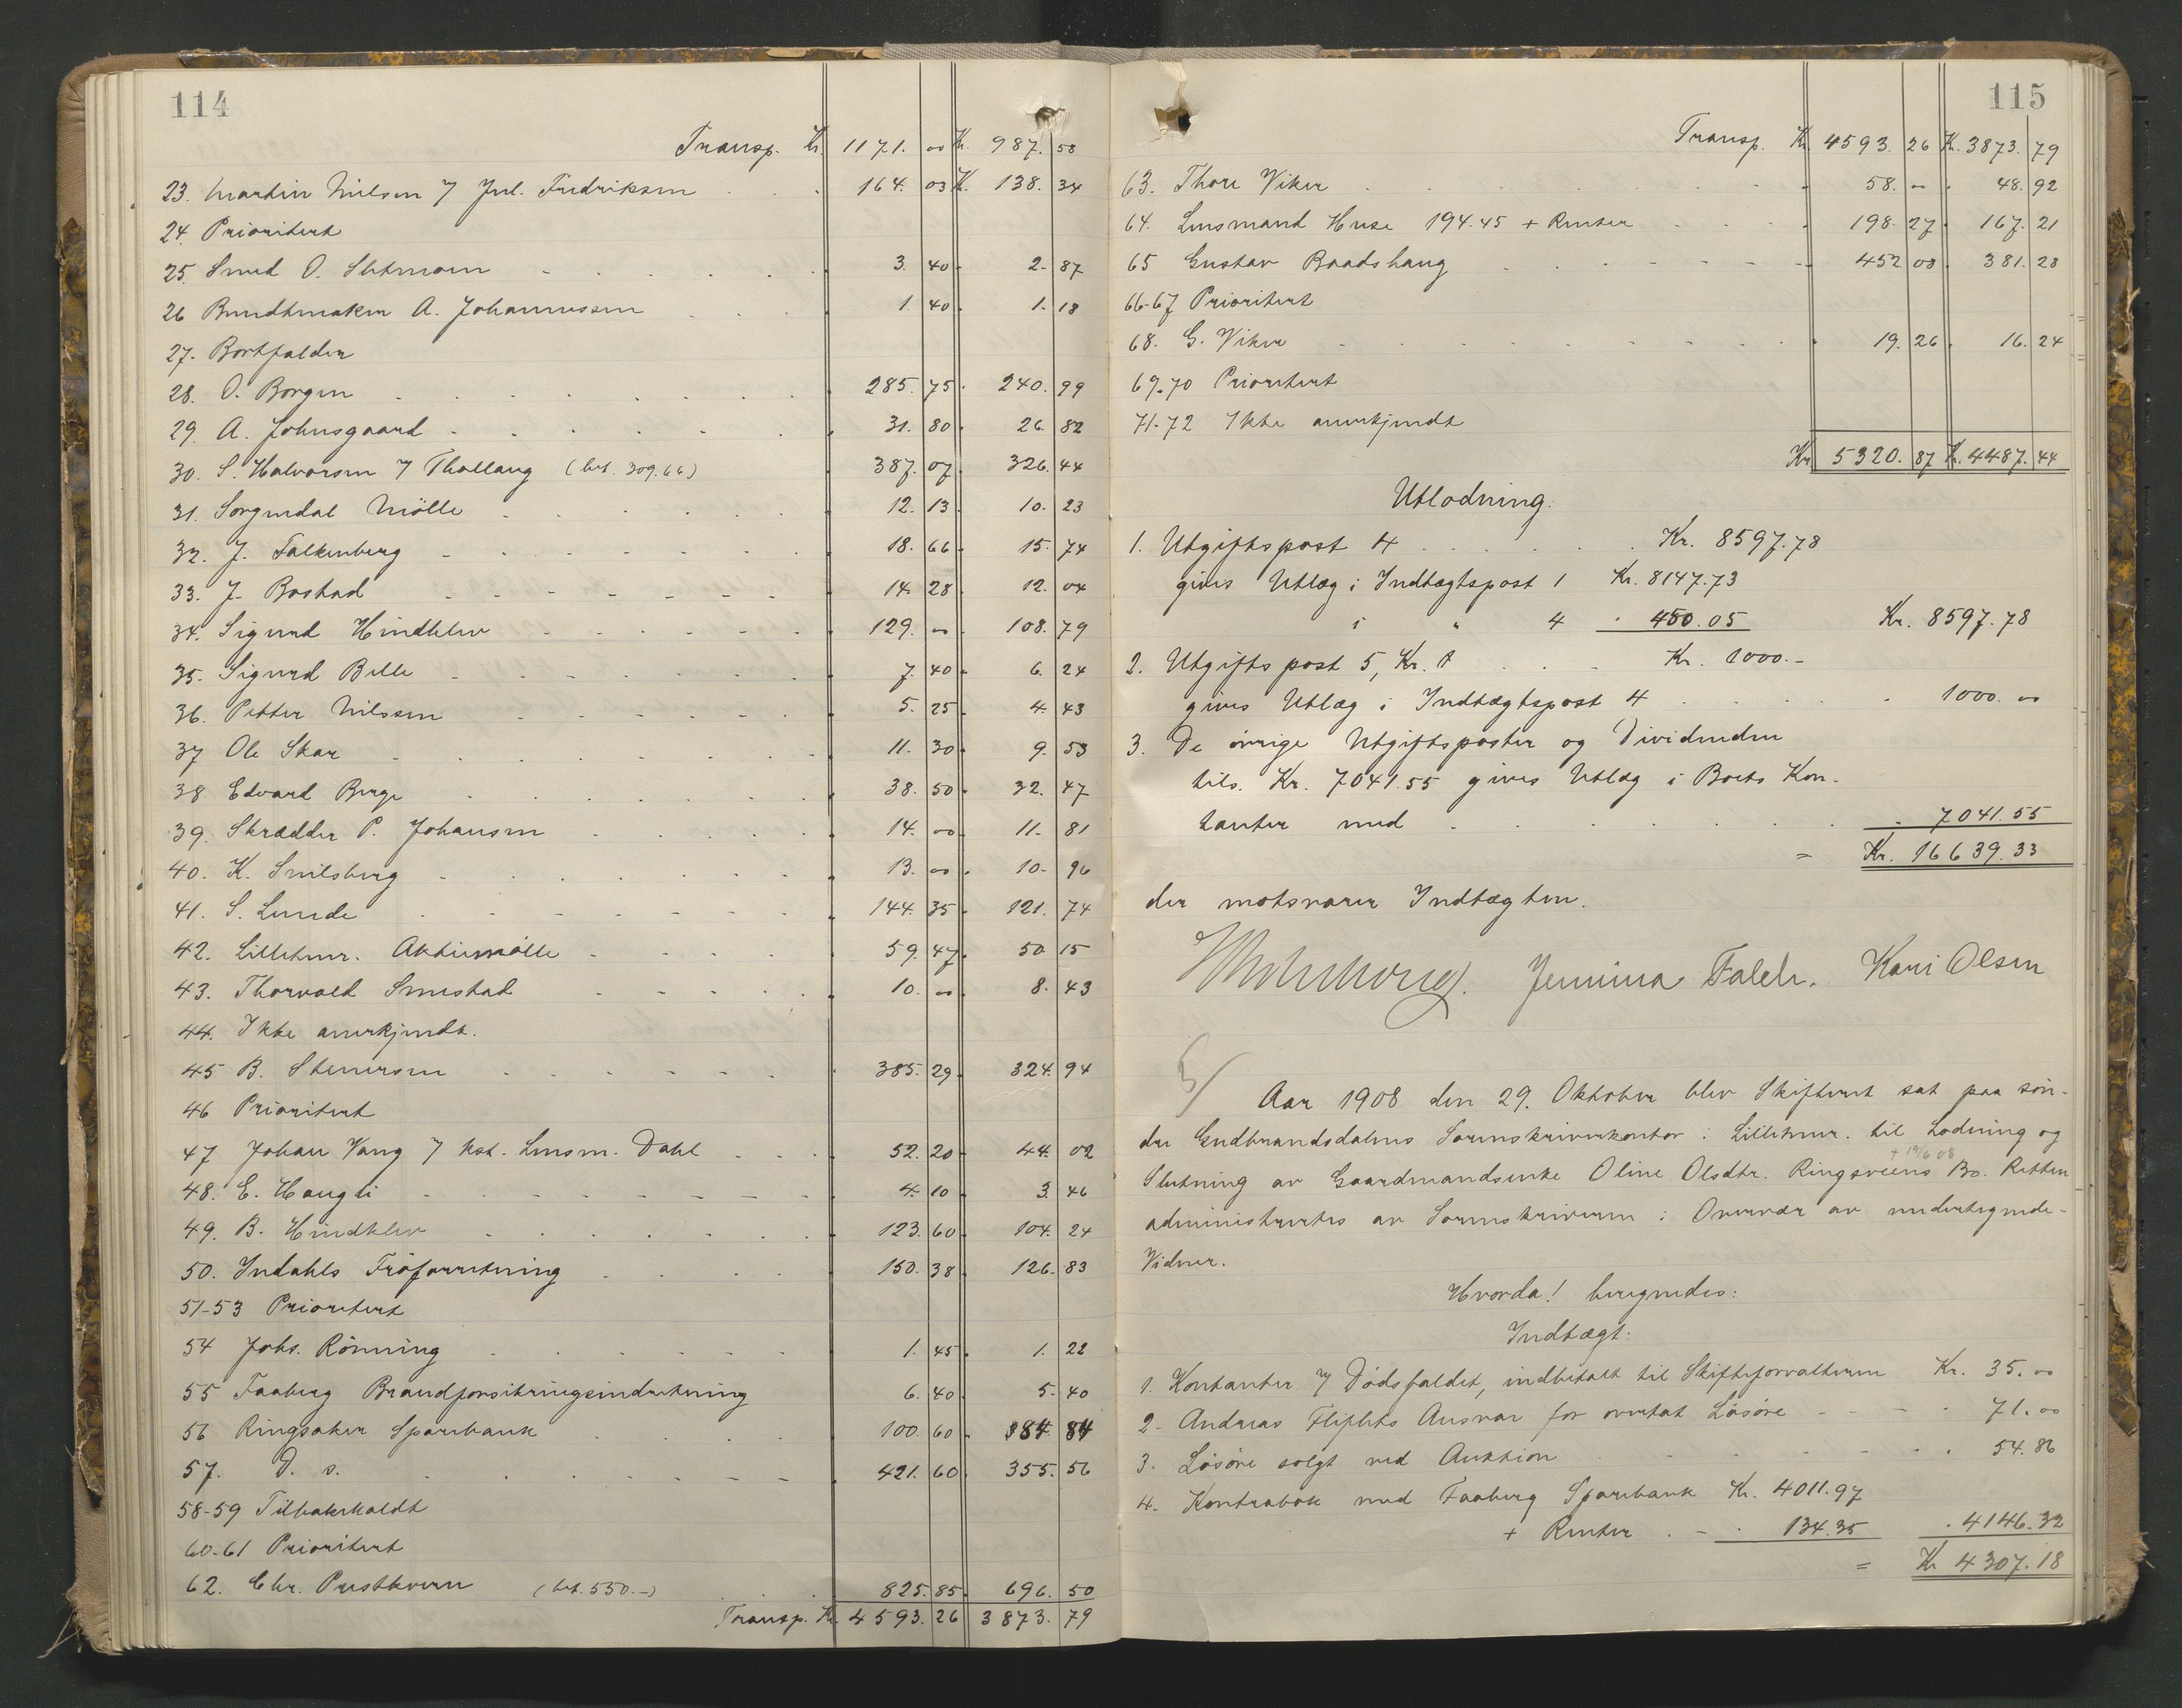 114
Transp. Kr. 1171. 00 Kr. 987. 58
23. Martin Nilsen 7 Jul. Fredriksen . . . 164. 03 Kr. 138. 34
24. Prioritert
25. Smed O. Sletmoen - . . . . . 3. 40 - 2. 87
26 Bundtmaker A. Johannessen . . . . 1. 40 . 1. 18
27. Bortfalder
28. O. Borgen . . . . . . . 285. 75 . 240. 99
29. A. Johnsgaard - . . . . . 31. 80 . 26. 82
30. S. Halvorsen 7 Thallaug (bet. 309.66) . 387. 07 . 326. 44
31. Sorgendal Mölle . . . . . . 12. 13 . 10. 23
32. J. Falkenberg - . . . . . 18. 66 . 15. 74
33. J. Bostad - - - - - - - 14. 28 . 12. 04
34. Sigurd Hindklev - - - - - . 129. 00 . 108. 79
35. Sigurd Bille - - - - - . 7. 40 . 6. 24
36. Petter Nilssen - - - - - . 5. 25 . 4. 43
37 Ole Skar . . . . . . . 11. 30 . 9. 53
38 Edvard Berge . . . . . . 38. 50 . 32. 47
39. Skrædder P. Johansen . . . . . 14. 00 . 11. 81
40. K. Snilsberg - . . . . . . 13. 00 . 10. 96
41. S. Lunde . . . . . . . 144. 35 . 121. 74
42. Lillehmr. Aktiemölle - . . . . 59. 47 . 50 15
43. Thorvald Smestad - - . . . 10. 00 . 8. 43
44. Ikke anerkjendt.
45 B. Stenersen - - - - - . 385. 29 . 324. 94
46 Prioritert
47 Johan Vang 7 kst. Lensm. Dahl . . . 52. 20 . 44. 02
48. E. Haugli - - - - - - - 4. 10 . 3. 46
49. B. Hindklev . . . . . . . 123. 60 . 104. 24
50. Indahls Fröforretning . . . . . 150. 38 . 126. 83
51-53 Prioritert
54 Johs. Rönning . . . . . . 1. 45 . 1. 22
55 Faaberg Brandforsikringsindretning 6. 40 . 5. 40
56 Ringsaker Sparebank . . . . . 100 60 . 84 84
57. D. o. . . . . . . . 421. 60 . 355. 56
58-59 Tilbakekaldt
60-61 Prioritert
62. Chr. Prestkvern (bet. 550.-) . . 825. 85 . 696. 50
Transp. Kr. 4593. 26 3873. 79
115
Transp. Kr. 4593. 26 Kr. 3873. 79
63. Thore Viker . . . . . . . 58. 00 . 48. 92
64. Lensmand Huse 194.45 + Renter . . . 198. 27 . 167. 21
65 Gustav Baadshaug . . . . . . 452 08 . 381. 28
66-67 Prioritert
68. G. Viker . . . . . . . 19. 26 . 16. 24
69-70 Prioritert
71-72 Ikke anerkjendt
Kr. 5320. 87 Kr. 4487. 44
Utlodning.
1. Utgiftspost 4 . . . . . Kr. 8597.78
gives Utlæg i Indtægtspost 1 Kr. 8147.73
i " 4 . 450.05 Kr. 8597.78
2. Utgiftspost 5, Kr. . . - Kr. 1000.-
gives Utlæg i Indtægtspost 4 . . . . . 1000. 00
3. De övrige Utgiftsposter og Dividenden
tils. Kr. 7041.55 gives Utlæg i Boets Kon-
tanter med . . . . . . . . 7041.55
= Kr. 16639.33
der motsvarer Indtægten.
Jemima Falch. Kari Olsen
5/
Aar 1908 den 29. Oktober blev Skifteret sat paa sön-
dre Gudbrandsdalens Sorenskriverkontor i Lillehmr. til Lodning og
+ 19/6 08
Slutning av Gaardmandsenke Oline Olsdtr. Ringsveens Bo. Retten
administrertes av Sorenskriveren i Overvær av undertegnede
Vidner.
Hvorda! beregnedes:
Indtægt:
1. Kontanter 7 Dödsfaldet, indbetalt til Skifteforvalteren Kr. 35. 00
2. Andreas Fliflets Ansvar for overtat Lösöre - - - . 71. 00
3. Lösöre solgt ved Auktion . - - - - . . 54. 86
4. Kontrabok med Faaberg Sparebank Kr. 4011.97
+ Renter . - . 134.35 . 4146.32
= Kr 4307.18